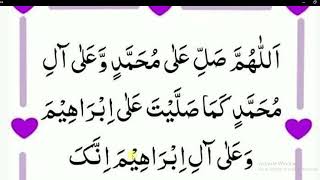 اَللّٰهُمَّ صَلِّ عَلٰى مُحَمَّدٍ وَّعَلٰٓى اٰلِ
مُحَمَّدٍ كَمَا صَلَّيْتَ عَلٰٓى اِبْرَاهِيْمَ
وَعَلٰٓى اٰلِ اِبْرَاهِيْمَ اِنَّكَ